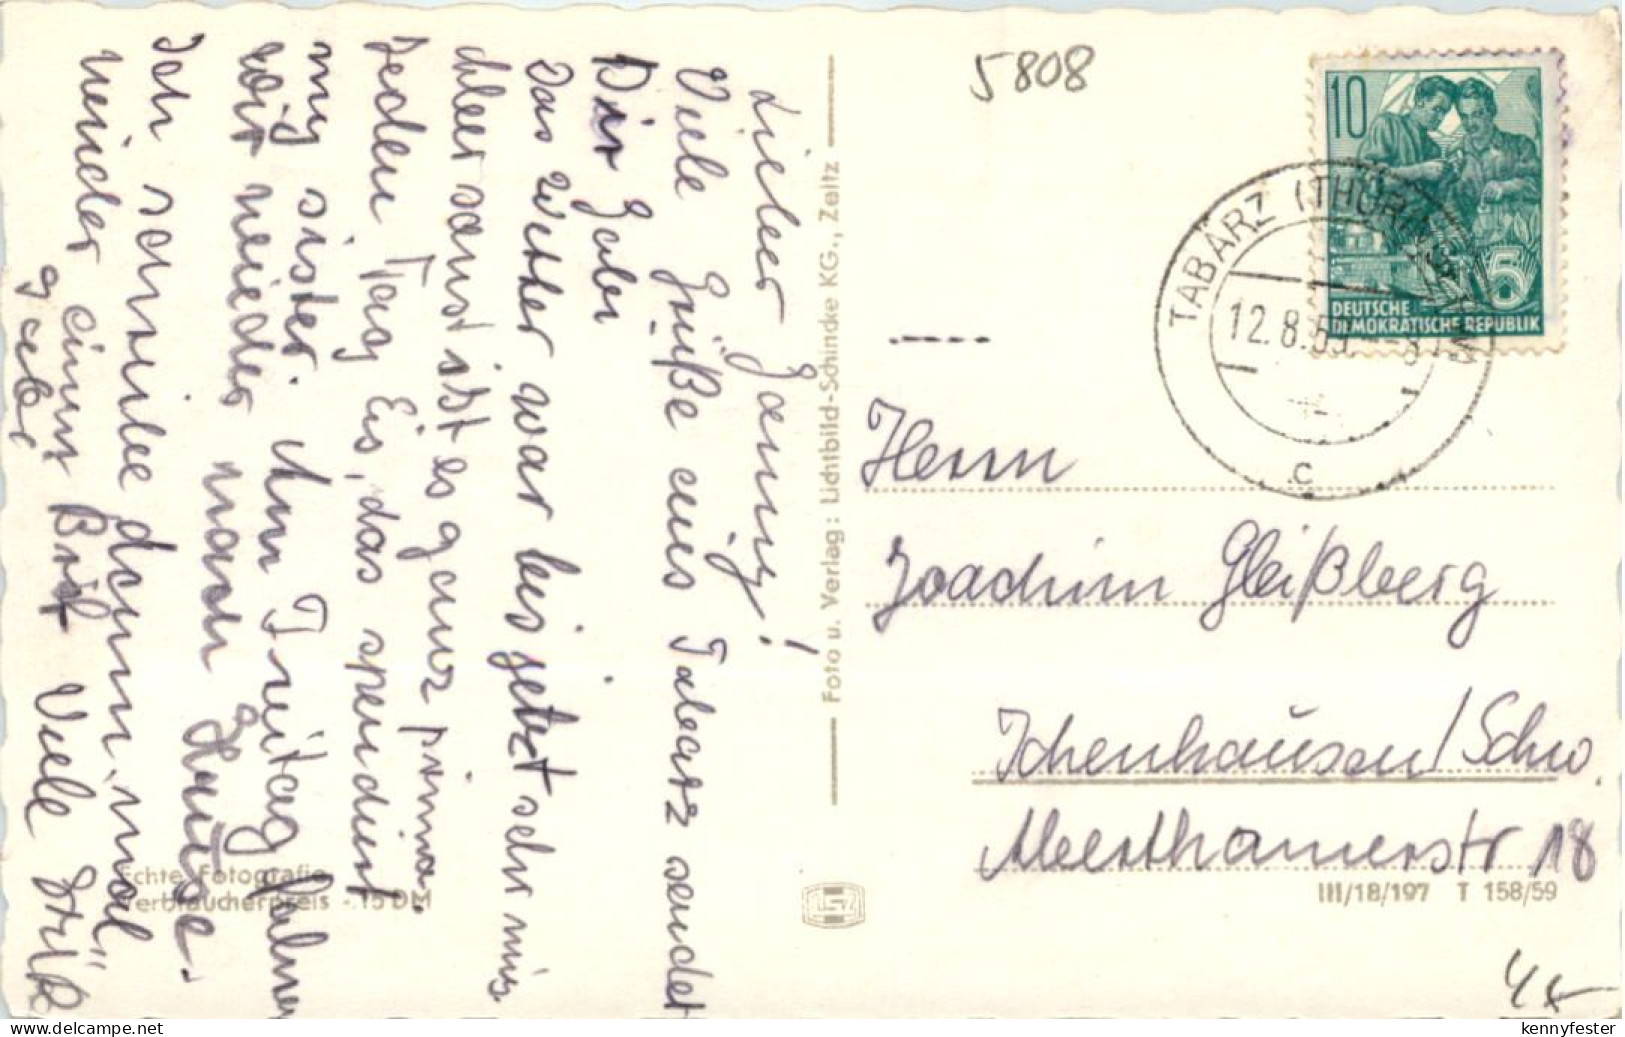 Lieber Janny!
Viele Grüße aus Tabarz sendet
Dir Gabi
Das Wetter war bis jetzt sehr mis
Aber sonst ist es ganz prima.
Jeden Tag Eis, das spendiert
my sister. Am Freitag fahren
wir wieder nach Hause.
Ich schreibe dann mal
wieder einen Brief Viele Grüße
Gabi
Foto u. Verlag: Lichtbild-Schincke KG., Zeitz
Echte Fotografie
Verbraucherpreis -.15 DM
5808
10
5
DEUTSCHE
DEMOKRATISCHE REPUBLIK
TABARZ (THÜR
12.8.
c
Herrn
Joachim Gleißberg
Ichenhausen/Schw.
18
III/18/197 T 158/59
kennyfester
www.delcampe.net